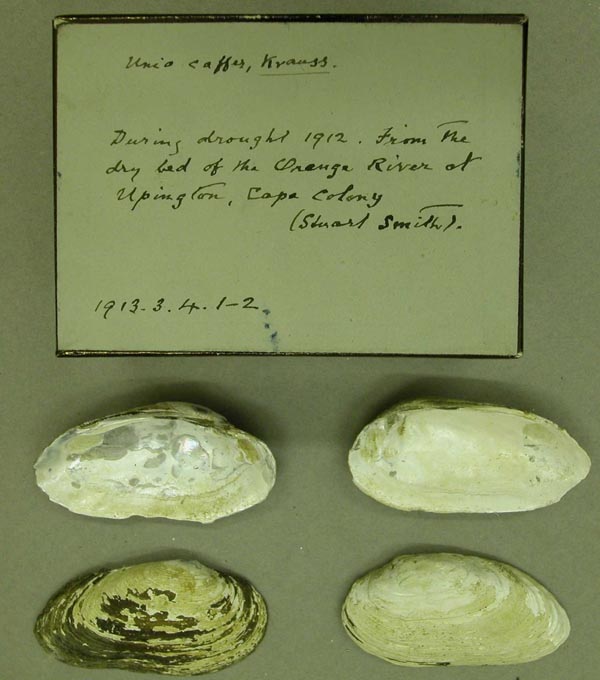 Unio caffer, Krauss.
During drought 1912. From the
dry bed of the Orange River at
Upington, Cape Colony
(Stuart Smith).
1913.3.4.1-2